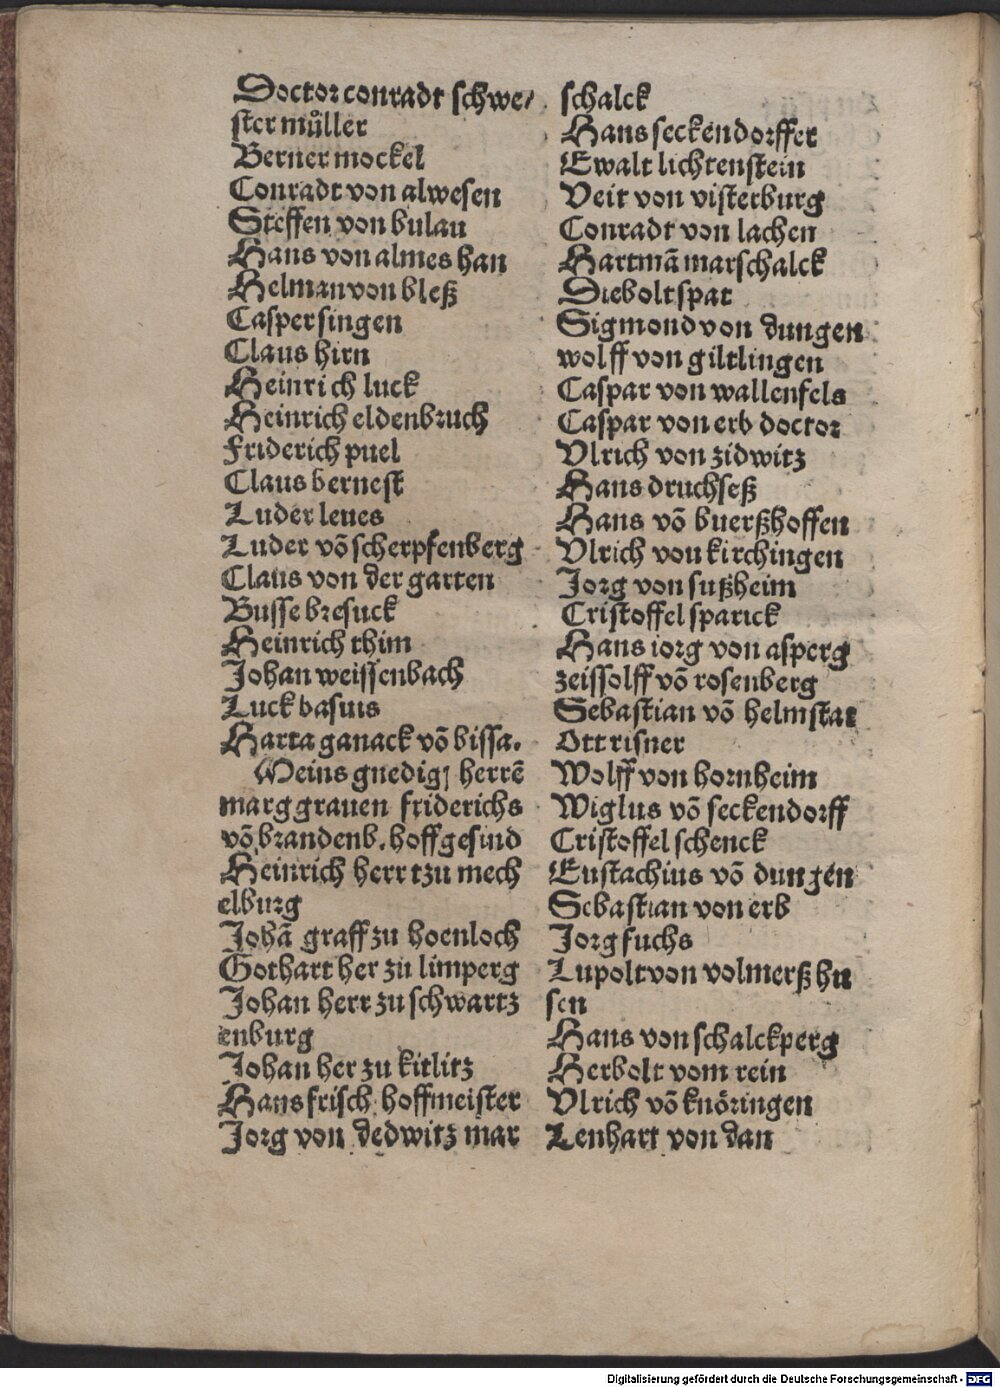 Doctor conradt schwe/
ster můller
Berner mockel
Conradt von alwesen
Steffen von bulau
Hans von almes han
Helman von bleß
Casper singen
Claus hirn
Heinrich luck
Heinrich eldenbruch
Friderich puel
Claus bernest
Luder leues
Luder vō scherpfenberg
Claus von der garten
Busse bresuck
Heinrich thim
Johan weissenbach
Luck basuis
Harta ganack vō bissa.
Meins gnedigȷ herrē
marggrauen friderichs
vō brandenb. hoffgesind
Heinrich herr tzu mech
elburg
Johā graff zu hoenloch
Gothart her zu limperg
Johan herr zu schwartz
enburg
Johan her zu kitlitz
Hans frisch hoffmeister
Jorg von dedwitz mar
schalck
Hans seckendorffer
Ewalt lichtenstein
Veit von visterburg
Conradt von lachen
Hartmā marschalck
Diebolt spat
Sigmond von dungen
wolff von giltlingen
Caspar von wallenfels
Caspar von erb doctor
Vlrich von zidwitz
Hans druchseß
Hans vō buerßhoffen
Vlrich von kirchingen
Jorg von sußheim
Cristoffel sparick
Hans iorg von asperg
zeissolff vō rosenberg
Sebastian vō helmstat
Ott risner
Wolff von hornheim
Wiglus vō seckendorff
Cristoffel schenck
Eustachius vō dungen
Sebastian von erb
Jorg fuchs
Lupolt von volmerßhu
sen
Hans von schalckperg
Herbolt vom rein
Vlrich vō knöringen
Lenhart von dan
Digitalisierung gefördert durch die Deutsche Forschungsgemeinschaft - DFG